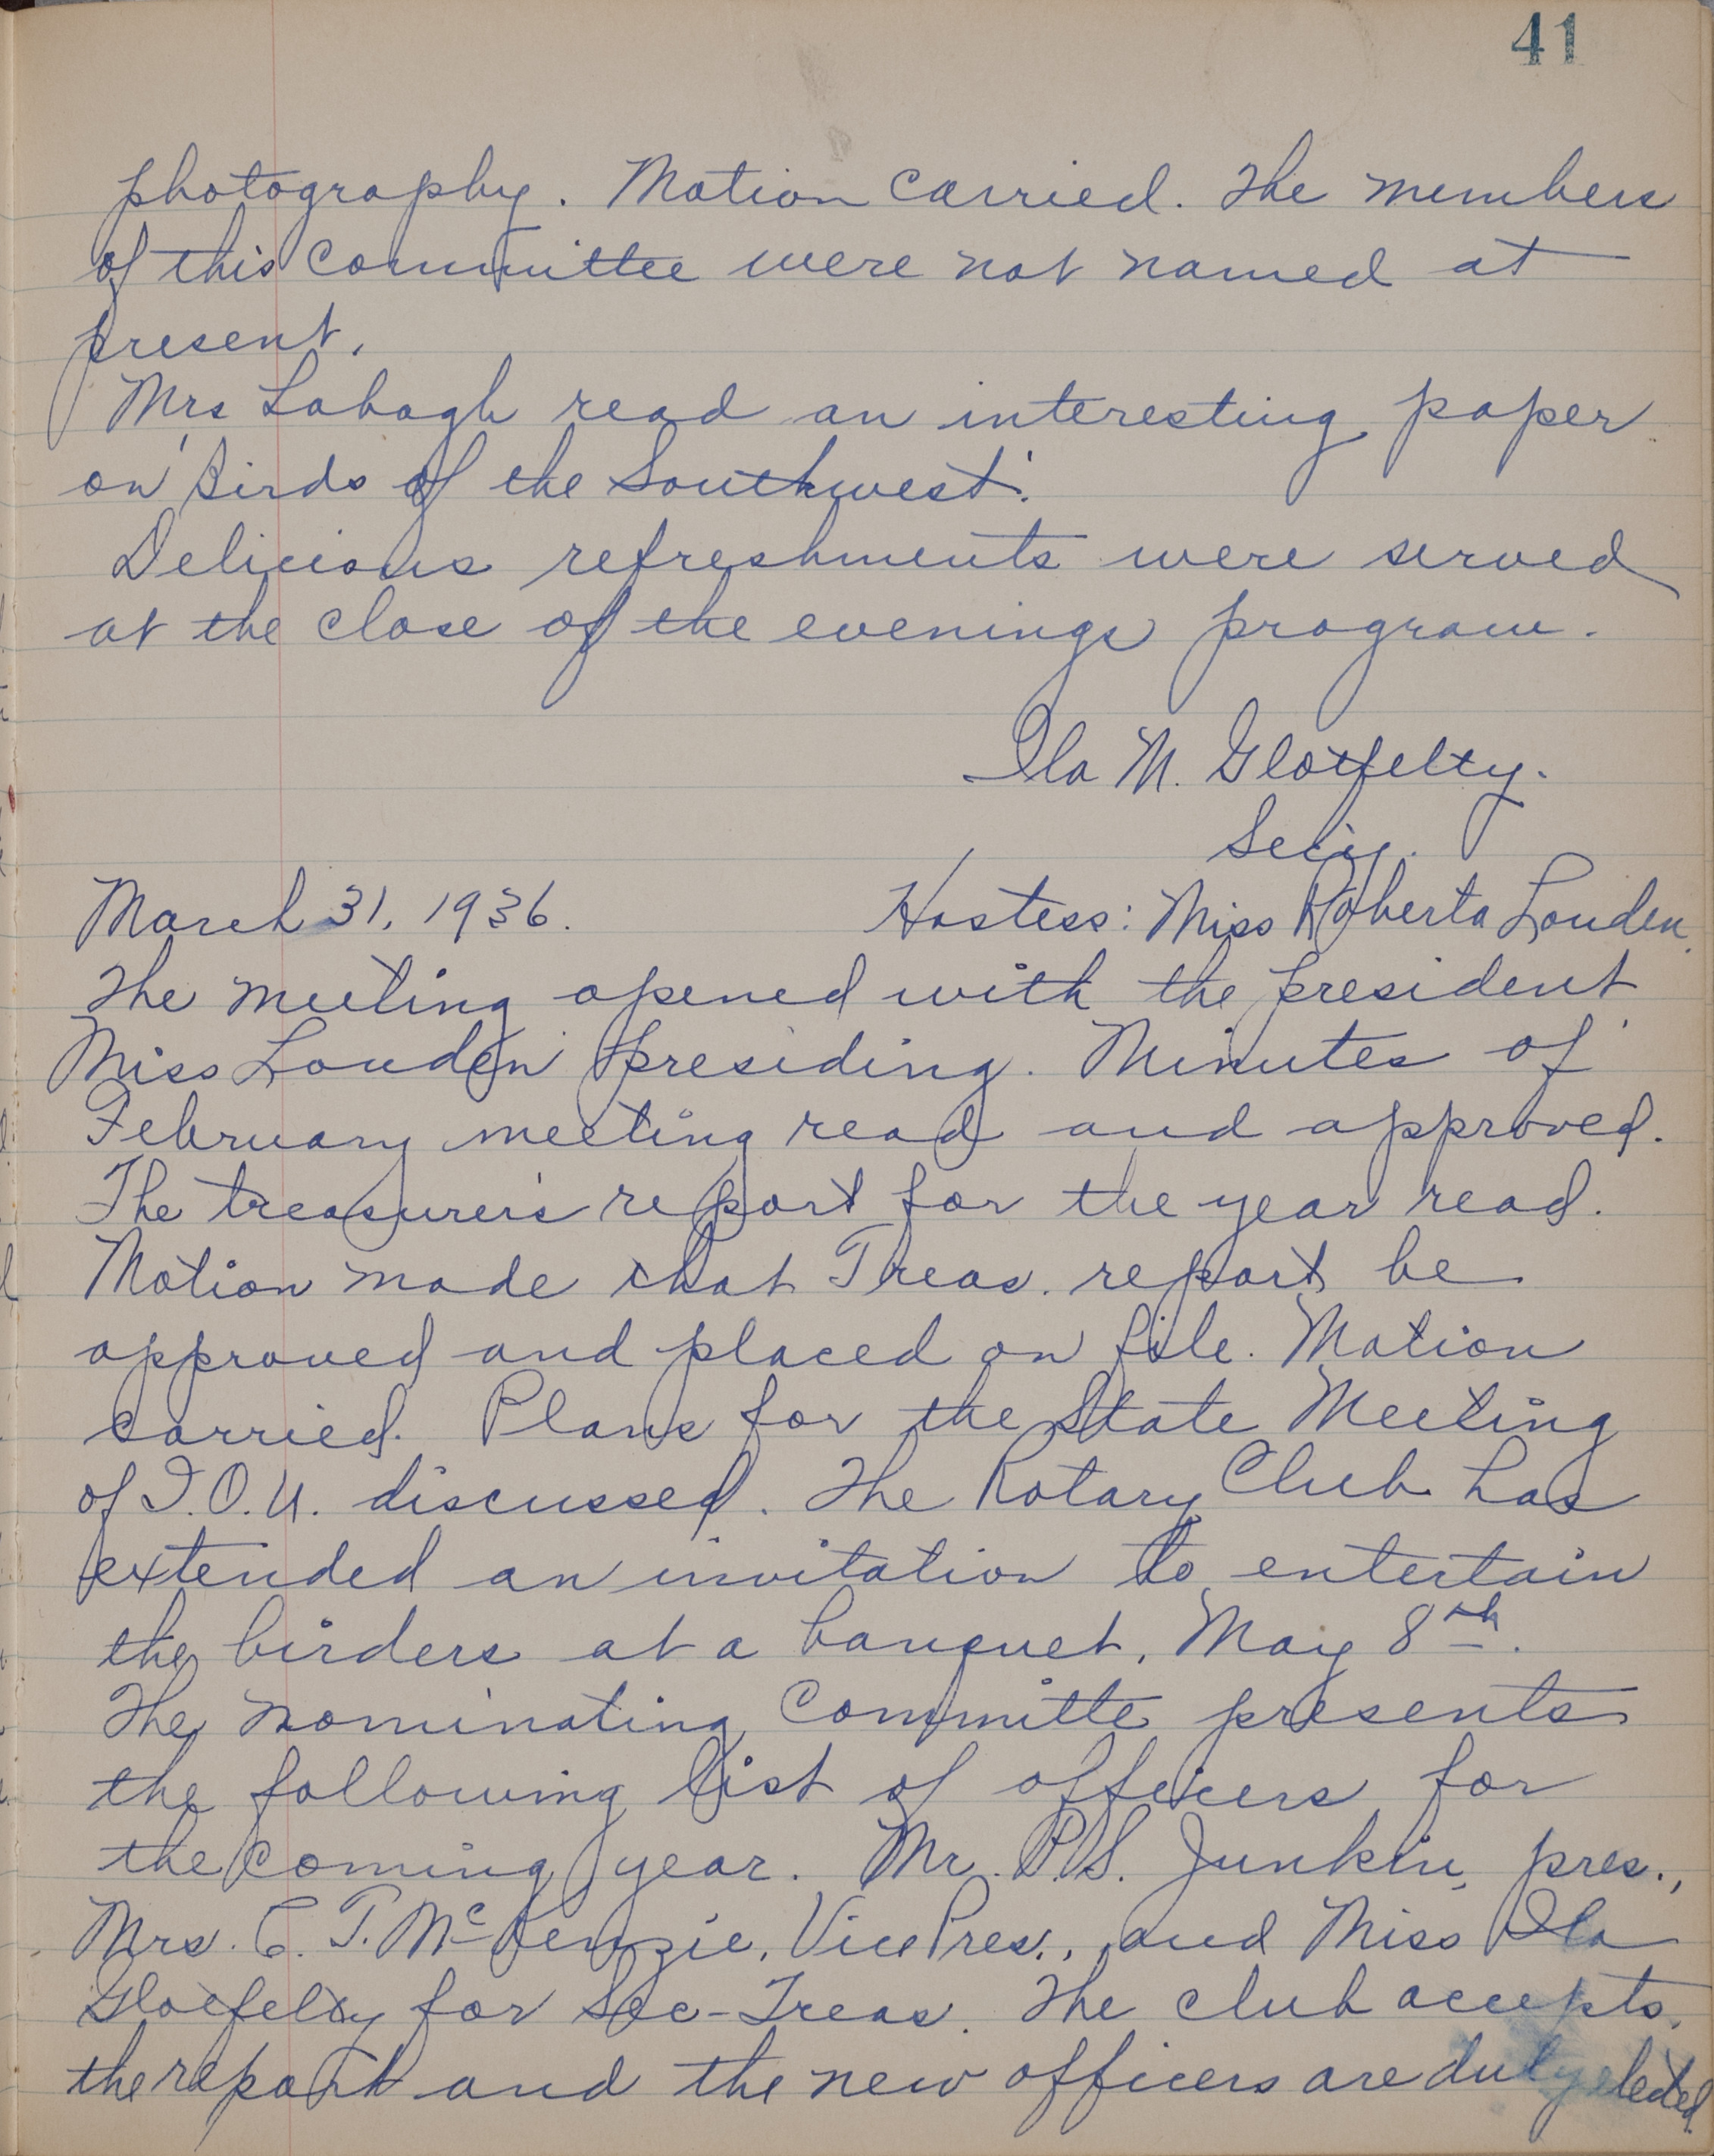 41
photography. Motion carried. The members
of this committee were not named at
present.
Mrs Labagh read an interesting paper
on 'Birds of the Southwest'.
Delicious refreshments were served
at the close of the evenings program.
Ila M. Glotfelty.
Sec'y.
March 31, 1936. Hostess: Miss Roberta Louden.
The meeting opened with the president
Miss Louden presiding. Minutes of
February meeting read and approved.
The treasurer's report for the year read.
Motion made that Treas. report be
approved and placed on file. Motion
carried. Plans for the State Meeting
of I.O.U. discussed. The Rotary Club has
extended an invitation to entertain
the birders at a banquet, May 8th.
The nominating Committe presents
the following list of officers for
the coming year. Mr. P.S. Junkin, pres.,
Mrs. C. T. McKenzie, Vice Pres., and Miss Ila
Glotfelty for Sec-Treas. The club accepts
the report and the new officers are duly elected.